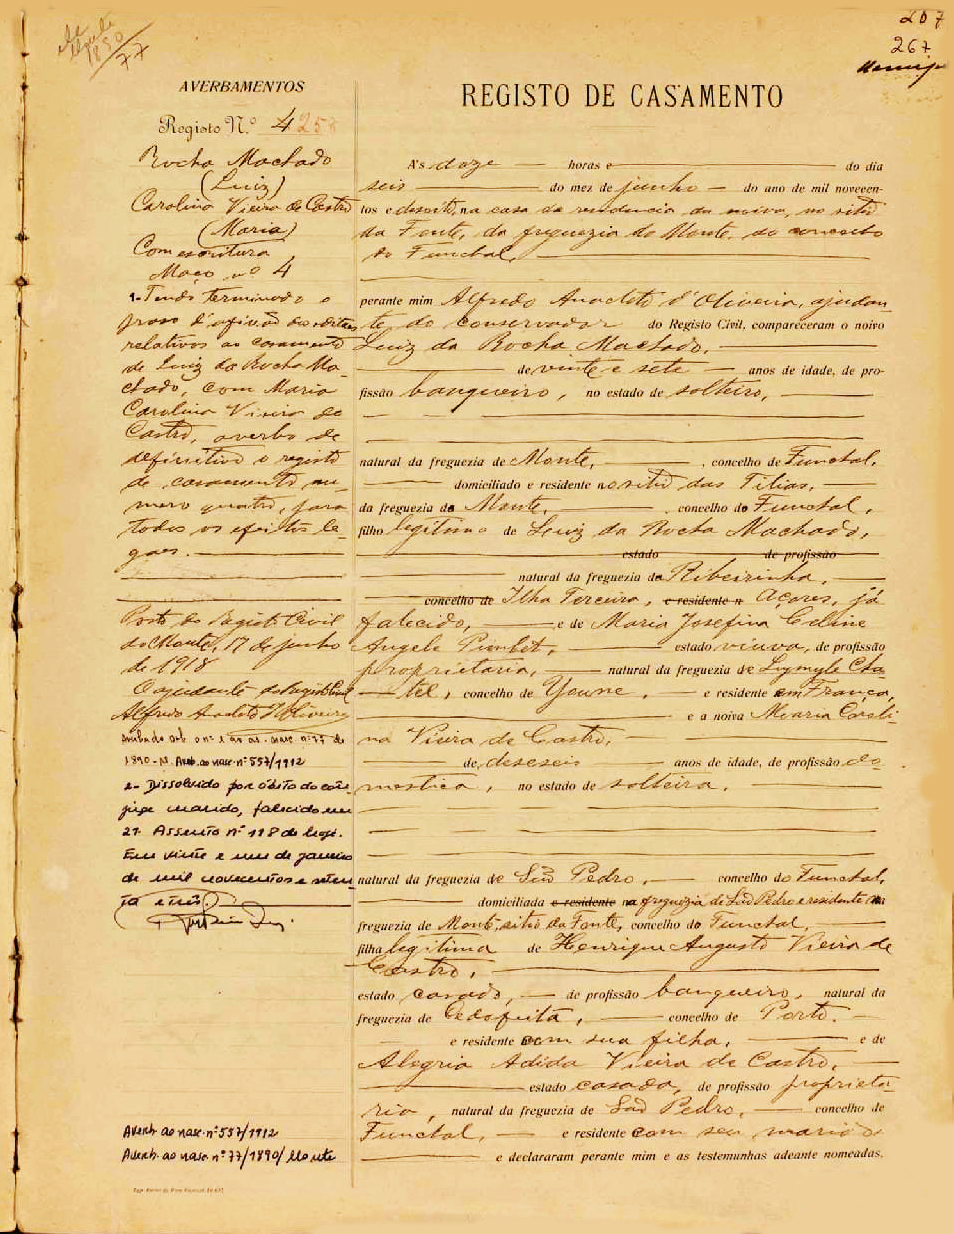 1890/77
207
267
AVERBAMENTOS
Registo N.º 4
Rocha Machado
(Luiz)
Carolina Vieira de Castro
(Maria)
Com escritura
Maço nº 4
1- Tendo terminado o
praso d'afixão dos editaes
relativos ao casamento
de Luiz da Rocha Ma-
chado, com Maria
Carolina Vieira de
Castro, averbo de
definitivo o registo
de casamento nu-
mero quatro, para
todos os efeitos le-
gaes.
Posto do Registo Civil
do Monte, 17 de junho
de 1918
O ajudante do Registo Civil
Alfredo Anacleto d'Oliveira
1890 - Averb. ao nasc. nº 557/1912
2- Dissolvido por óbito do côn-
juge marido, falecido em
21. Assento nº 118 de hoje.
Em vinte e um de janeiro
de mil novecentos e seten-
ta e três.
Averb. ao nasc. nº 557/1912
Averb. ao nasc. nº 77/1890/Monte
REGISTO DE CASAMENTO
A's doze horas e do dia
seis do mez de junho do ano de mil novecen-
tos e desoito, na casa da residencia da noiva, no sitio
da Fonte, da freguezia do Monte, do concelho
do Funchal,
perante mim Alfredo Anacleto d'Oliveira, ajudan-
te do conservador do Registo Civil, compareceram o noivo
Luiz da Rocha Machado,
de vinte e sete anos de idade, de pro-
fissão banqueiro, no estado de solteiro,
natural da freguezia de Monte, concelho de Funchal,
domiciliado e residente no sitio das Tilias,
da freguezia do Monte, concelho do Funchal,
filho legitimo de Luiz da Rocha Machado,
estado de profissão
natural da freguezia da Ribeirinha,
concelho de Ilha Terceira, e residente n Açores, já
falecido, e de Maria Josefina Celine
Angele Pimbet, estado viuva, de profissão
proprietaria, natural da freguezia de Cha-
tel, concelho de Yonne, e residente em França,
e a noiva Maria Caroli-
na Vieira de Castro,
de deseseis anos de idade, de profissão do-
mestica, no estado de solteira,
natural da freguezia de São Pedro, concelho do Funchal,
domiciliada e residente na freguezia de São Pedro e residente na
freguezia de Monte, sitio da Fonte, concelho do Funchal,
filha legitima de Henrique Augusto Vieira de
Castro,
estado casado, de profissão banqueiro, natural da
freguezia de Cedofeita, concelho de Porto
e residente com sua filha, e de
Alegria Adida Vieira de Castro,
estado casada, de profissão proprieta-
ria, natural da freguezia de São Pedro, concelho de
Funchal, e residente com seu marido
e declararam perante mim e as testemunhas adeante nomeadas,